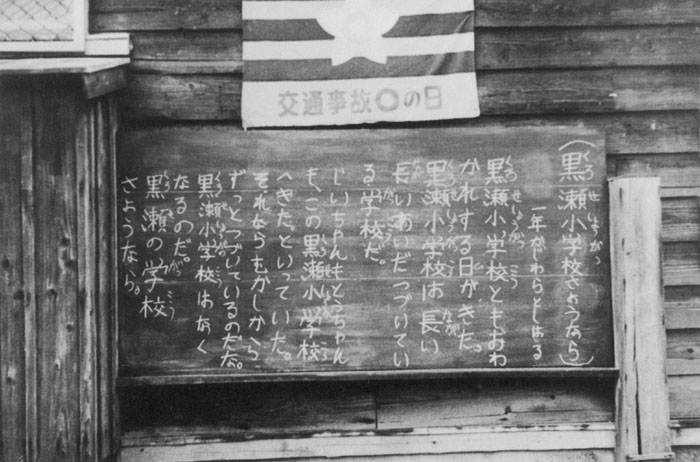 交通事故〇の日
(黒瀬小学校さようなら)
一年ふじわらとしはる
黒瀬小学校ともおわ
かれする日がきた。
黒瀬小学校は長い
長いあいだつづいてい
る学校だ。
じいちゃんもとうちゃん
も、この黒瀬小学校
へきた。といっていた。
それならむかしから
ずっとつづいているのだな。
黒瀬小学校はなく
なるのだ。
黒瀬の学校
さようなら。